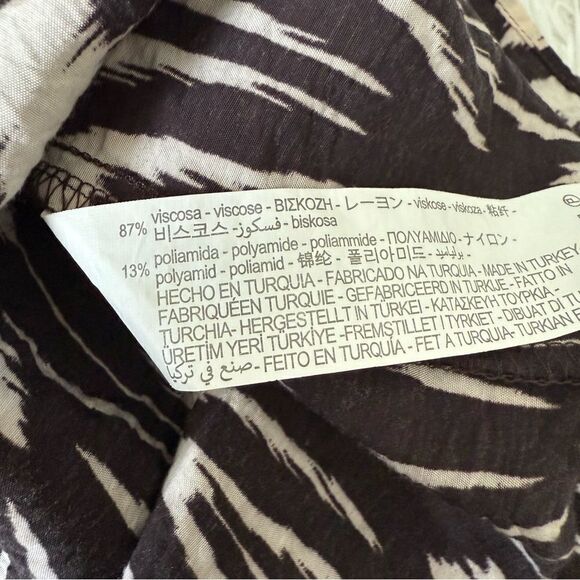 87% viscosa - viscose - ΒΙΣΚΟΖΗ - レーヨン - viskose - viskoza - 粘纤 -
비스코스 - فسكوز - biskosa
13% poliamida - polyamide - poliammide - ΠΟΛΥΑΜΙΔΙΟ - ナイロン -
polyamid - poliamid - 锦纶 - 폴리아미드 - بوليأميد -
HECHO EN TURQUIA - FABRICADO NA TURQUIA - MADE IN TURKEY
FABRIQUÉEN TURQUIE - GEFABRICEERD IN TURKIJE - FATTO IN
TURCHIA - HERGESTELLT IN TÜRKEI - ΚΑΤΑΣΚΕΥΗ ΤΟΥΡΚΙΑ -
ÜRETİM YERİ TÜRKİYE - FREMSTILLET I TYRKIET - DIBUAT DI
صنع في تركيا - FEITO EN TURQUÍA - FET A TURQUIA - TURKIAN